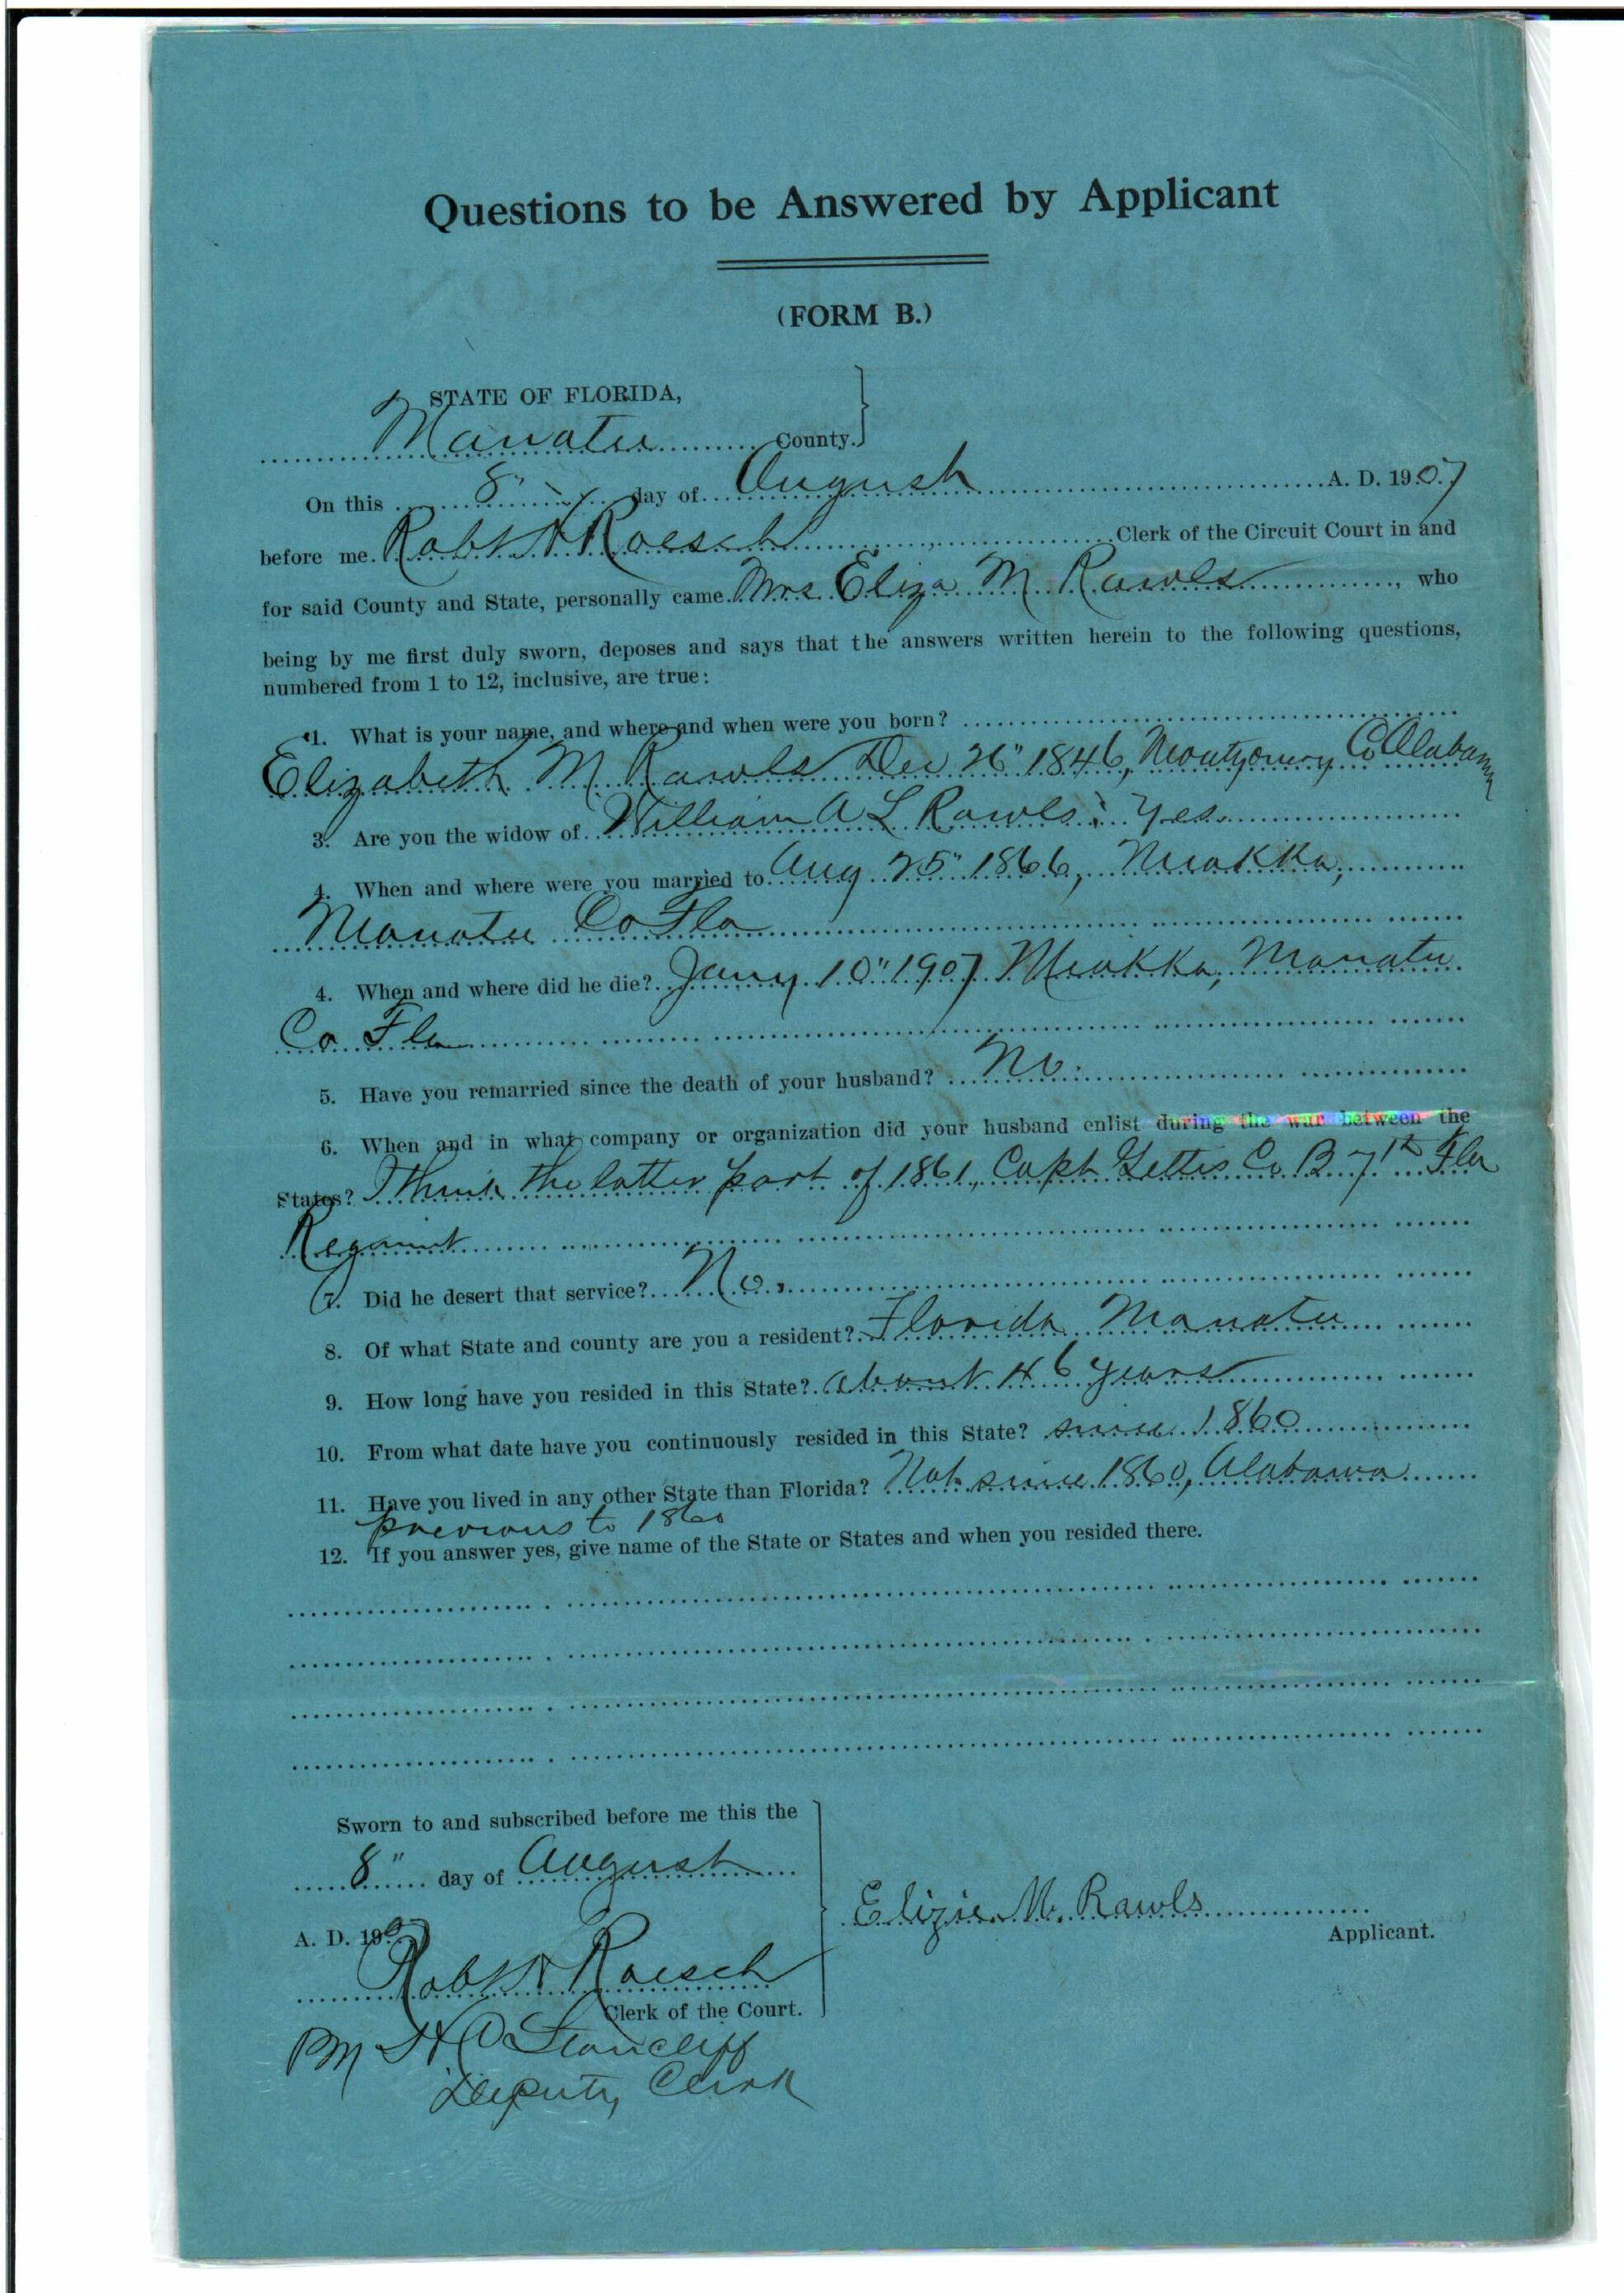 Questions to be Answered by Applicant
(FORM B.)
STATE OF FLORIDA,
Manatee County.
On this 8" day of August A. D. 1907
before me Robt H Roesch Clerk of the Circuit Court in and
for said County and State, personally came Mrs Eliza M Rawls, who
being by me first duly sworn, deposes and says that the answers written herein to the following questions,
numbered from 1 to 12, inclusive, are true:
1. What is your name, and where and when were you born?
Elizabeth M Rawls Dec 26" 1846, Montgomery Co Alabama
3. Are you the widow of William A L Rawls: Yes
4. When and where were you married to Aug 25" 1866, Miakka,
Manatee Co Fla
4. When and where did he die? Jany 10" 1907 Miakka, Manatee
Co Fla
5. Have you remarried since the death of your husband? No.
6. When and in what company or organization did your husband enlist during the war between the
States? I think the latter part of 1861, Capt Gettis Co. B 7th Fla
Regiment
7. Did he desert that service? No.
8. Of what State and county are you a resident? Florida Manatee
9. How long have you resided in this State? about 46 years
10. From what date have you continuously resided in this State? since 1860
11. Have you lived in any other State than Florida? Not since 1860, Alabama
previous to 1860
12. If you answer yes, give name of the State or States and when you resided there.
Sworn to and subscribed before me this the
8" day of August
A. D. 1907
Elizie M. Rawls
Applicant.
Robt H Roesch
Clerk of the Court.
Deputy Clerk